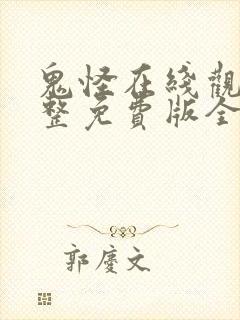 鬼怪在綫觀
整免費版全
郭慶文